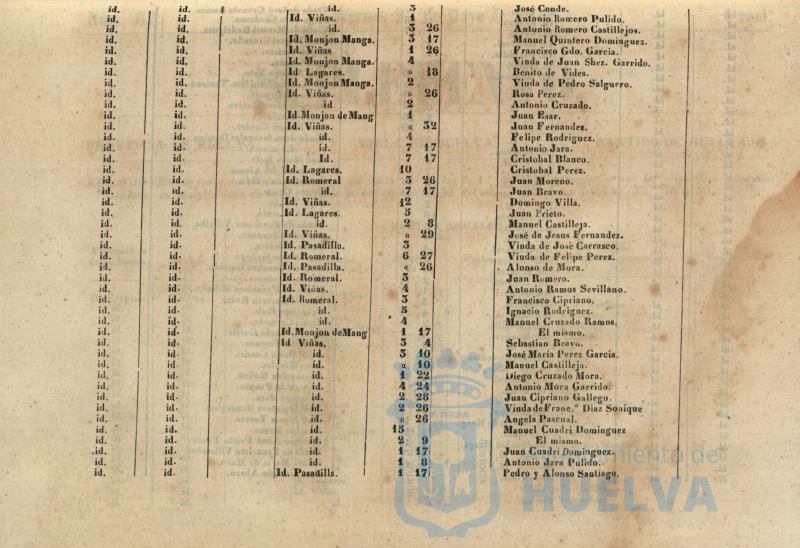 id. id. id. 3 José Conde.
id. id. Id. Viñas. 1 Antonio Romero Pulido.
id. id. id. 3 26 Antonio Romero Castillejos.
id. id. Id. Monjon Manga. 3 17 Manuel Quintero Dominguez.
id. id. Id. Viñas 1 26 Francisco Gdo. Garcia.
id. id. Id. Monjon Manga. 4 Viuda de Juan Shez. Garrido.
id. id. Id. Lagares. » 18 Benito de Vides.
id. id. Id. Monjon Manga. 2 Viuda de Pedro Salguero.
id. id. Id. Viñas. » 26 Rosa Perez.
id. id. id 2 Antonio Cruzado.
id. id. Id. Monjon de Mang 1 Juan Esar.
id. id. Id. Viñas. « 32 Juan Fernandez.
id. id. id. 4 Felipe Rodriguez.
id. id. id. 7 17 Antonio Jara.
id. id. Id. 7 17 Cristobal Blanco.
id. id. Id. Lagares. 10 Cristobal Perez.
id. id. Id. Romeral 3 26 Juan Moreno.
id. id. id. 7 17 Juan Bravo.
id. id. Id. Viñas. 12 Domingo Villa.
id. id. Id. Lagares. 3 Juan Prieto.
id. id. id. 2 8 Manuel Castilleja.
id. id. Id. Viñas. « 29 José de Jesus Fernandez.
id. id. Id. Pasadilla. 3 Viuda de Josè Carrasco.
id. id. Id. Romeral. 6 27 Viuda de Felipe Perez.
id. id. Id. Pasadilla. « 26 Alonso de Mora.
id. id. Id. Romeral. 3 Juan Romero.
id. id. Id. Viñas. 4 Antonio Ramos Sevillano.
id. id. Id. Romeral. 3 Francisco Cipriano.
id. id. id. 5 Ignacio Rodriguez.
id. id. id. 4 Manuel Cruzado Ramos.
id. id. Id. Monjon de Mang 1 17 El mismo.
id. id. Id Viñas. 3 4 Sebastian Bravo.
id. id. id. 3 10 José María Perez Garcia.
id. id. id. « 10 Manuel Castilleja.
id. id. id. 1 22 Diego Cruzado Mora.
id. id. id. 4 24 Antonio Mora Garrido.
id. id. id. 2 28 Juan Cipriano Gallego.
id. id. id. 2 26 Viuda de Franc.º Diaz Sonique
id. id. id. « 26 Angela Pascual.
id. id. id. 15 Manuel Cuadri Dominguez
id. id. id. 2 9 El mismo.
id. id. id. 1 17 Juan Cuadri Dominguez.
id. id. id. 1 8 Antonio Jara Pulido.
id. id. Id. Pasadilla. 1 17 Pedro y Alonso Santiago.
HUELVA